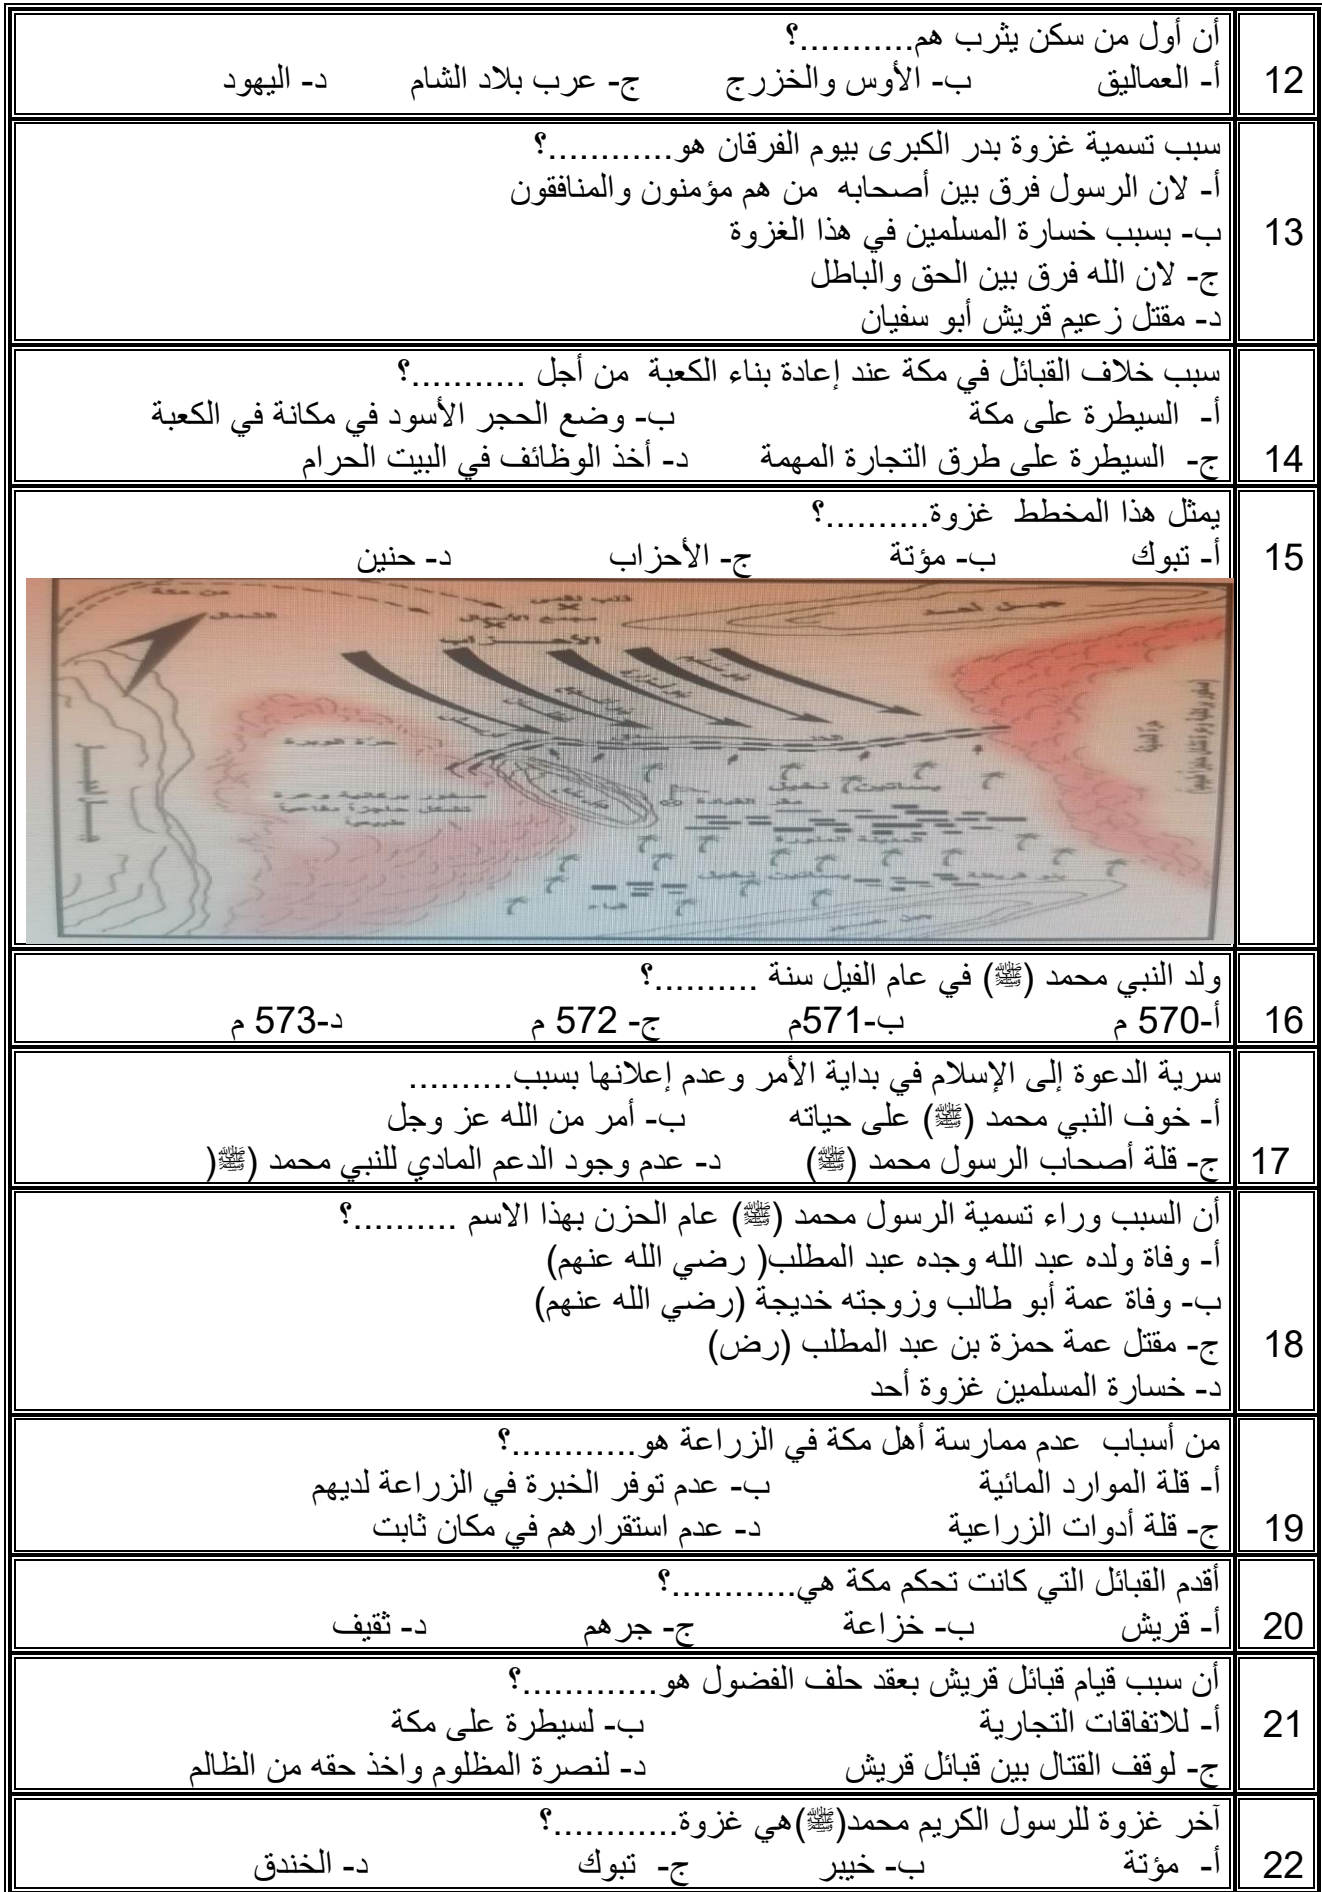 12
أن أول من سكن يثرب هم...........؟
أ- العماليق ب- الأوس والخزرج ج- عرب بلاد الشام د- اليهود
13
سبب تسمية غزوة بدر الكبرى بيوم الفرقان هو............؟
أ- لان الرسول فرق بين أصحابه من هم مؤمنون والمنافقون
ب- بسبب خسارة المسلمين في هذا الغزوة
ج- لان الله فرق بين الحق والباطل
د- مقتل زعيم قريش أبو سفيان
14
سبب خلاف القبائل في مكة عند إعادة بناء الكعبة من أجل ...........؟
أ- السيطرة على مكة ب- وضع الحجر الأسود في مكانة في الكعبة
ج- السيطرة على طرق التجارة المهمة د- أخذ الوظائف في البيت الحرام
15
يمثل هذا المخطط غزوة..........؟
أ- تبوك ب- مؤتة ج- الأحزاب د- حنين
من مكة
الشمال
مجمع الأسيال
جبل أحد
الأحزاب
حرة الوبرة
صخور بركانية وعرة
تشكل حاجزا دفاعيا
طبيعيا
بساتين نخيل
مقر القيادة
المدينة المنورة
بساتين نخيل
بنو قريظة
قباء
16
ولد النبي محمد (ﷺ) في عام الفيل سنة ..........؟
أ-570 م ب-571م ج- 572 م د-573 م
17
سرية الدعوة إلى الإسلام في بداية الأمر وعدم إعلانها بسبب..........
أ- خوف النبي محمد (ﷺ) على حياته ب- أمر من الله عز وجل
ج- قلة أصحاب الرسول محمد (ﷺ) د- عدم وجود الدعم المادي للنبي محمد (ﷺ(
18
أن السبب وراء تسمية الرسول محمد (ﷺ) عام الحزن بهذا الاسم ..........؟
أ- وفاة ولده عبد الله وجده عبد المطلب( رضي الله عنهم)
ب- وفاة عمة أبو طالب وزوجته خديجة (رضي الله عنهم)
ج- مقتل عمة حمزة بن عبد المطلب (رض)
د- خسارة المسلمين غزوة أحد
19
من أسباب عدم ممارسة أهل مكة في الزراعة هو............؟
أ- قلة الموارد المائية ب- عدم توفر الخبرة في الزراعة لديهم
ج- قلة أدوات الزراعية د- عدم استقرارهم في مكان ثابت
20
أقدم القبائل التي كانت تحكم مكة هي............؟
أ- قريش ب- خزاعة ج- جرهم د- ثقيف
21
أن سبب قيام قبائل قريش بعقد حلف الفضول هو.............؟
أ- للاتفاقات التجارية ب- لسيطرة على مكة
ج- لوقف القتال بين قبائل قريش د- لنصرة المظلوم واخذ حقه من الظالم
22
آخر غزوة للرسول الكريم محمد(ﷺ)هي غزوة............؟
أ- مؤتة ب- خيبر ج- تبوك د- الخندق